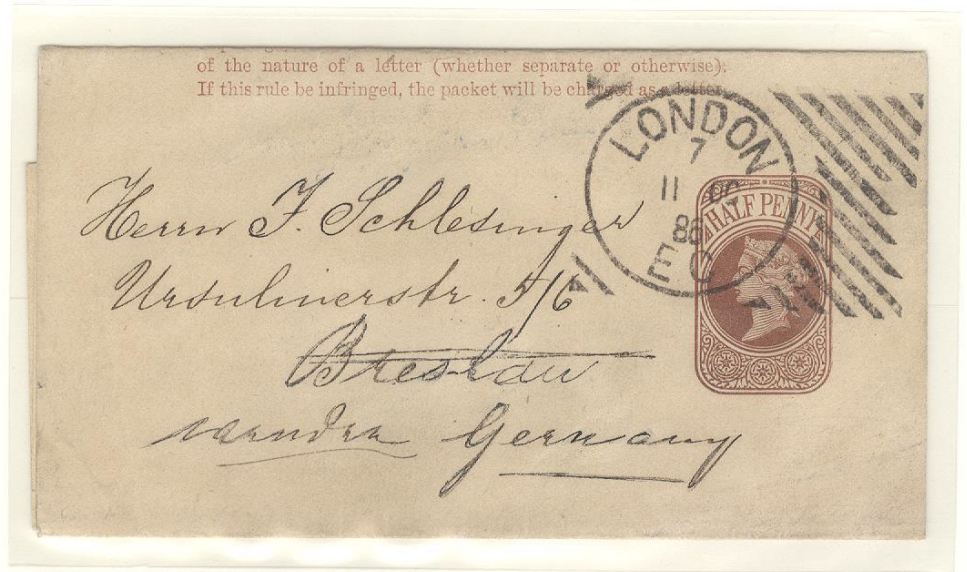 of the nature of a letter (whether separate or otherwise).
If this rule be infringed, the packet will be charged as a letter.
LONDON
7
11
86
E C
HALF PENNY
Herrn F. Schlesinger
Ursulinerstr. 5/6
Breslau
Germany